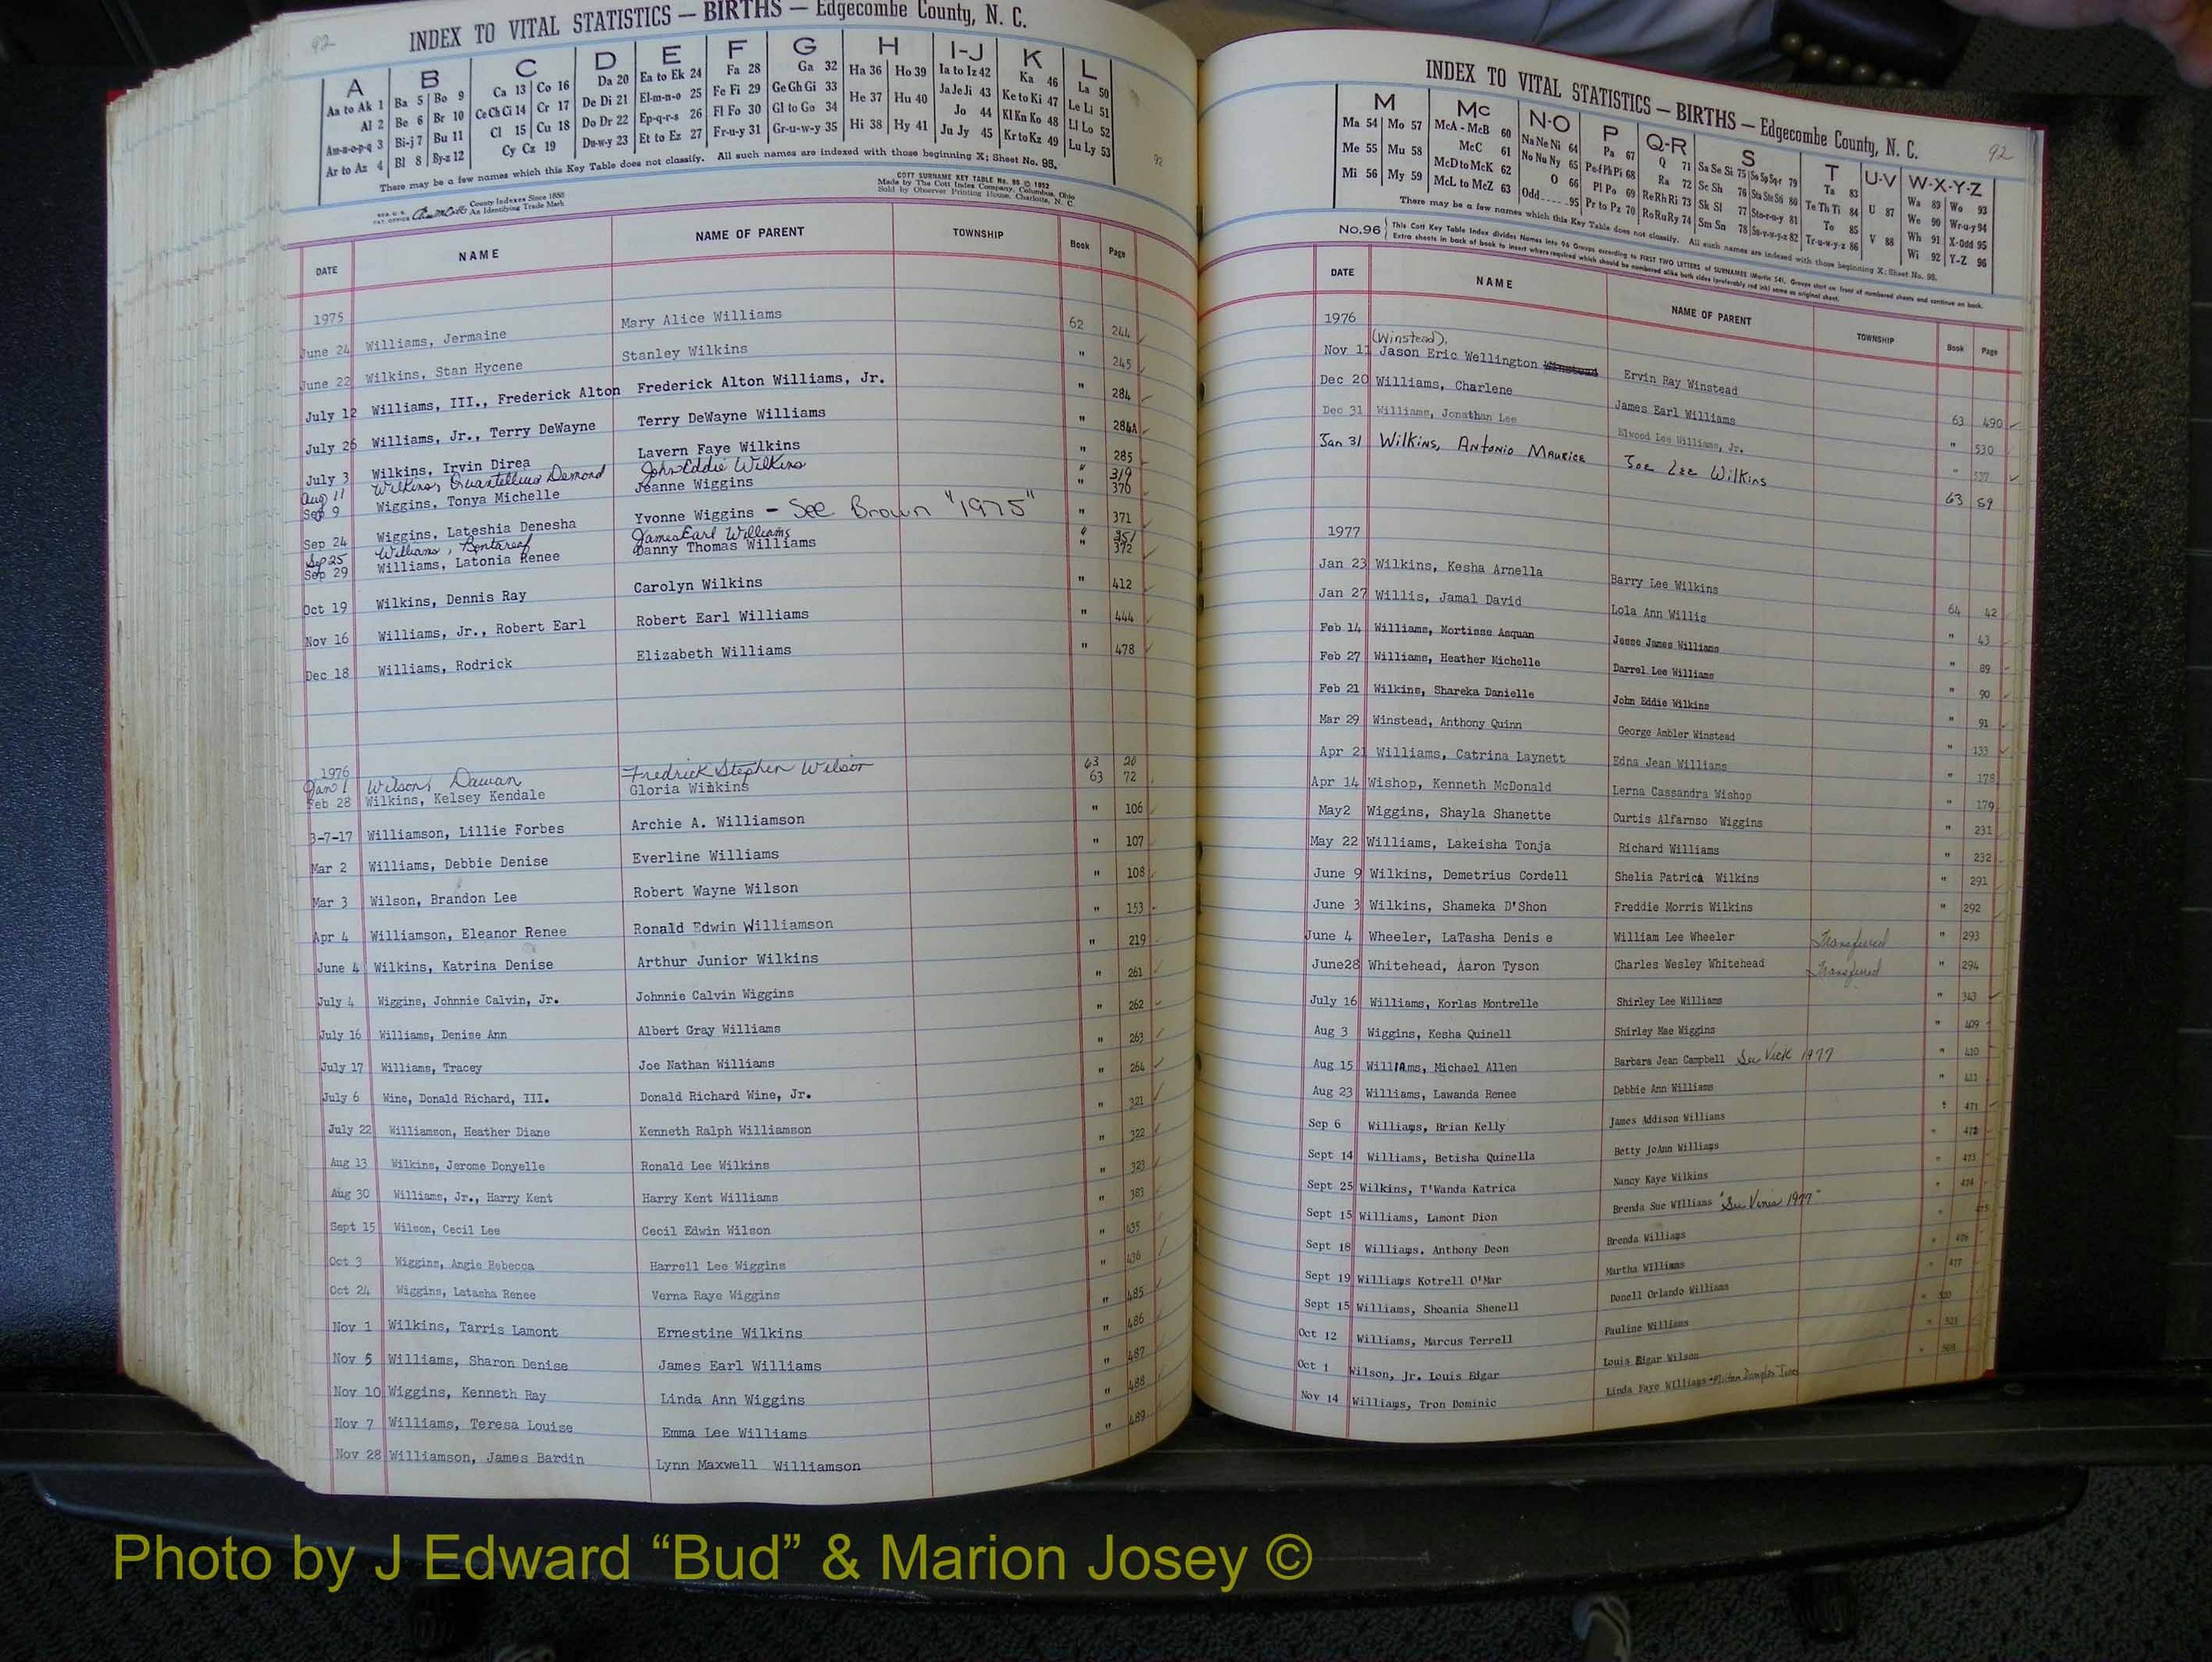 92
INDEX TO VITAL STATISTICS — BIRTHS — Edgecombe County, N. C.
A B C D E F G H I-J K L
Aa to Ak 1 Ba 5 Bo 9 Ca 13 Co 16 Da 20 Ea to Ek 24 Fa 28 Ga 32 Ha 36 Ho 39 Ia to Iz 42 Ka 46 La 50
Al 2 Be 6 Br 10 Ce Ch Ci 14 Cr 17 De Di 21 El-m-n-o 25 Fe Fi 29 Ge Gh Gi 33 He 37 Hu 40 Ja Je Ji 43 Ke to Ki 47 Le Li 51
Am-n-o-p-q 3 Bi-j 7 Bu 11 Cl 15 Cu 18 Do Dr 22 Ep-q-r-s 26 Fl Fo 30 Gl to Go 34 Hi 38 Hy 41 Jo 44 Kl Kn Ko 48 Ll Lo 52
Ar to Az 4 Bl 8 By-z 12 Cy Cz 19 Du-w-y 23 Et to Ez 27 Fr-u-y 31 Gr-u-w-y 35 Ju Jy 45 Kr to Kz 49 Lu Ly 53
There may be a few names which this Key Table does not classify. All such names are indexed with those beginning X; Sheet No. 95.
County Indexes Since 1888
An Identifying Trade Mark
COTT SURNAME KEY TABLE No. 96 © 1952
Made by The Cott Index Company, Columbus, Ohio
Sold by Observer Printing House, Charlotte, N. C.
92
DATE NAME NAME OF PARENT TOWNSHIP Book Page
1975
June 24 Williams, Jermaine Mary Alice Williams 62 244
June 22 Wilkins, Stan Hycene Stanley Wilkins " 245
July 12 Williams, III., Frederick Alton Frederick Alton Williams, Jr. " 284
July 26 Williams, Jr., Terry DeWayne Terry DeWayne Williams " 284A
July 3 Wilkins, Irvin Direa Lavern Faye Wilkins " 285
Aug 11 Wilkins, Quantellius Demond John Eddie Wilkins " 319
Sep 9 Wiggins, Tonya Michelle Jeanne Wiggins " 370
Sep 24 Wiggins, Lateshia Denesha Yvonne Wiggins - See Brown "1975" " 371
Sep 25 Williams, James Earl Williams " 351
Sep 29 Williams, Latonia Renee Danny Thomas Williams " 372
Oct 19 Wilkins, Dennis Ray Carolyn Wilkins " 412
Nov 16 Williams, Jr., Robert Earl Robert Earl Williams " 444
Dec 18 Williams, Rodrick Elizabeth Williams " 478
1976
Jan 1 Wilson, Dawan Fredrick Stephen Wilson 63 20
Feb 28 Wilkins, Kelsey Kendale Gloria Wilkins 63 72
3-7-17 Williamson, Lillie Forbes Archie A. Williamson " 106
Mar 2 Williams, Debbie Denise Everline Williams " 107
Mar 3 Wilson, Brandon Lee Robert Wayne Wilson " 108
Apr 4 Williamson, Eleanor Renee Ronald Edwin Williamson " 153
June 4 Wilkins, Katrina Denise Arthur Junior Wilkins " 219
July 4 Wiggins, Johnnie Calvin, Jr. Johnnie Calvin Wiggins " 261
July 16 Williams, Denise Ann Albert Gray Williams " 262
July 17 Williams, Tracey Joe Nathan Williams " 263
July 6 Wine, Donald Richard, III. Donald Richard Wine, Jr. " 264
July 22 Williamson, Heather Diane Kenneth Ralph Williamson " 321
Aug 13 Wilkins, Jerome Donyelle Ronald Lee Wilkins " 322
Aug 30 Williams, Jr., Harry Kent Harry Kent Williams " 323
Sept 15 Wilson, Cecil Lee Cecil Edwin Wilson " 383
Oct 3 Wiggins, Angie Rebecca Harrell Lee Wiggins " 435
Oct 24 Wiggins, Latasha Renee Verna Raye Wiggins " 436
Nov 1 Wilkins, Tarris Lamont Ernestine Wilkins " 485
Nov 5 Williams, Sharon Denise James Earl Williams " 486
Nov 10 Wiggins, Kenneth Ray Linda Ann Wiggins " 487
Nov 7 Williams, Teresa Louise Emma Lee Williams " 488
Nov 28 Williamson, James Bardin Lynn Maxwell Williamson " 489
INDEX TO VITAL STATISTICS — BIRTHS — Edgecombe County, N. C.
92
M Mc N-O P Q-R S T U-V W-X-Y-Z
Ma 54 Mo 57 McA - McB 60 Na Ne Ni 64 Pa 67 Q 71 Sa Se Si 75 So Sp Sq-r 79 Ta 83 U 87 Wa 89 Wo 93
Me 55 Mu 58 McC 61 No Nu Ny 65 Pe-f Ph Pi 68 Ra 72 Sc Sh 76 Sta Ste Sti 80 Te Th Ti 84 V 88 We 90 Wr-u-y 94
Mi 56 My 59 McD to McK 62 O 66 Pl Po 69 Re Rh Ri 73 Sk Sl 77 Sto-r-u-y 81 To 85 Wh 91 X-Odd 95
McL to McZ 63 Odd 95 Pr to Pz 70 Ro Ru Ry 74 Sm Sn 78 Su-v-w-y-z 82 Tr-u-w-y-z 86 Wi 92 Y-Z 96
There may be a few names which this Key Table does not classify. All such names are indexed with those beginning X; Sheet No. 95.
No.96 This Cott Key Table Index divides Names into 96 Groups according to FIRST TWO LETTERS of SURNAMES (Martin 54). Groups start on front of numbered sheets and continue on back.
Extra sheets in back of book to insert where required which should be numbered alike both sides (preferably red ink) same as original sheet.
DATE NAME NAME OF PARENT TOWNSHIP Book Page
1976
(Winstead),
Nov 11 Jason Eric Wellington Winstead Ervin Ray Winstead 63 490
Dec 20 Williams, Charlene James Earl Williams " 530
Dec 31 Williams, Jonathan Lee Elwood Lee Williams, Jr. " 537
Jan 31 Wilkins, Antonio Maurice Joe Lee Wilkins 63 59
1977
Jan 23 Wilkins, Kesha Arnella Barry Lee Wilkins 64 42
Jan 27 Willis, Jamal David Lola Ann Willis " 43
Feb 14 Williams, Mortisse Asquan Jesse James Williams " 89
Feb 27 Williams, Heather Michelle Darrel Lee Williams " 90
Feb 21 Wilkins, Shareka Danielle John Eddie Wilkins " 91
Mar 29 Winstead, Anthony Quinn George Ambler Winstead " 133
Apr 21 Williams, Catrina Laynett Edna Jean Williams " 178
Apr 14 Wishop, Kenneth McDonald Lerna Cassandra Wishop " 179
May2 Wiggins, Shayla Shanette Curtis Alfarnso Wiggins " 231
May 22 Williams, Lakeisha Tonja Richard Williams " 232
June 9 Wilkins, Demetrius Cordell Shelia Patrica Wilkins " 291
June 3 Wilkins, Shameka D'Shon Freddie Morris Wilkins " 292
June 4 Wheeler, LaTasha Denis e William Lee Wheeler Transferred " 293
June28 Whitehead, Aaron Tyson Charles Wesley Whitehead Transferred " 294
July 16 Williams, Korlas Montrelle Shirley Lee Williams " 343
Aug 3 Wiggins, Kesha Quinell Shirley Mae Wiggins " 409
Aug 15 Williams, Michael Allen Barbara Jean Campbell See Vick 1977 " 410
Aug 23 Williams, Lawanda Renee Debbie Ann Williams " 411
Sep 6 Williams, Brian Kelly James Addison Williams " 471
Sept 14 Williams, Betisha Quinella Betty JoAnn Williams " 472
Sept 25 Wilkins, T'Wanda Katrica Nancy Kaye Wilkins " 473
Sept 15 Williams, Lamont Dion Brenda Sue Williams "See 1977" " 474
Sept 18 Williams. Anthony Deon Brenda Williams " 475
Sept 19 Williams Kotrell O'Mar Martha Williams " 476
Sept 15 Williams, Shoania Shenell Donell Orlando Williams " 477
Oct 12 Williams, Marcus Terrell Pauline Williams " 520
Oct 1 Wilson, Jr. Louis Edgar Louis Edgar Wilson " 521
Nov 14 Williams, Tron Dominic Linda Faye Williams
Photo by J Edward “Bud” & Marion Josey ©